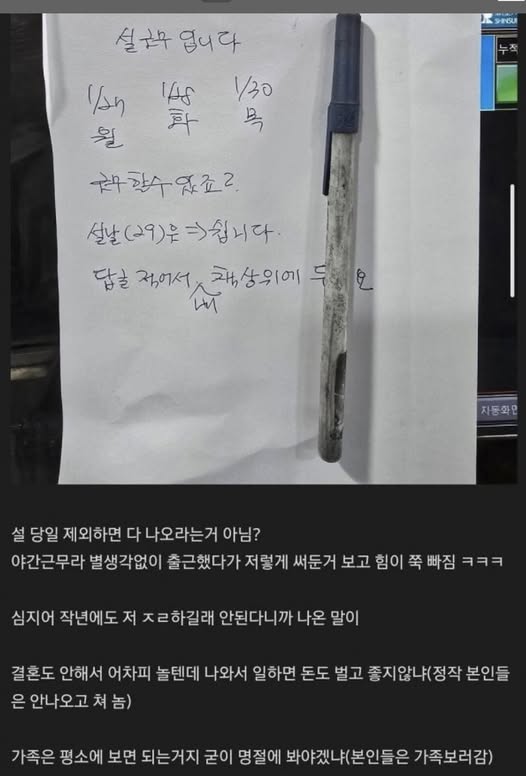 설 근무 입니다
1/27 1/28 1/30
월 화 목
근무 할수 있죠?
설날(29)은 => 쉽니다.
답글 적어서 내 책상위에
누적
자동화면
설 당일 제외하면 다 나오라는거 아님?
야간근무라 별생각없이 출근했다가 저렇게 써둔거 보고 힘이 쭉 빠짐 ㅋㅋㅋ
심지어 작년에도 저 ㅈㄹ하길래 안된다니까 나온 말이
결혼도 안해서 어차피 놀텐데 나와서 일하면 돈도 벌고 좋지않냐(정작 본인들
은 안나오고 쳐 놈)
가족은 평소에 보면 되는거지 굳이 명절에 봐야겠냐(본인들은 가족보러감)